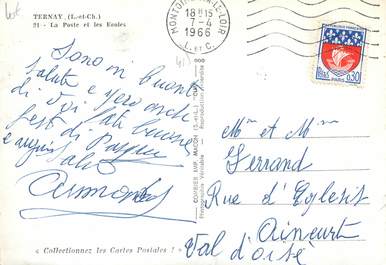 TERNAY (L.-et-Ch.)
21 - La Poste et les Ecoles
MONTOIRE-SUR-LE-LOIR
18H15
7-4
1966
L.-et-C.
PARIS
0,30
Sono in buona
salute e spero anche
di voi fate buone
feste di Pasqua
e auguri
COMBIER IMP. MACON (S.-et-L.)
Photographie Véritable - Reproduction interdite
Mr et Mme
Ferrand
Rue d'
Val d'oise
« Collectionnez les Cartes Postales ! »